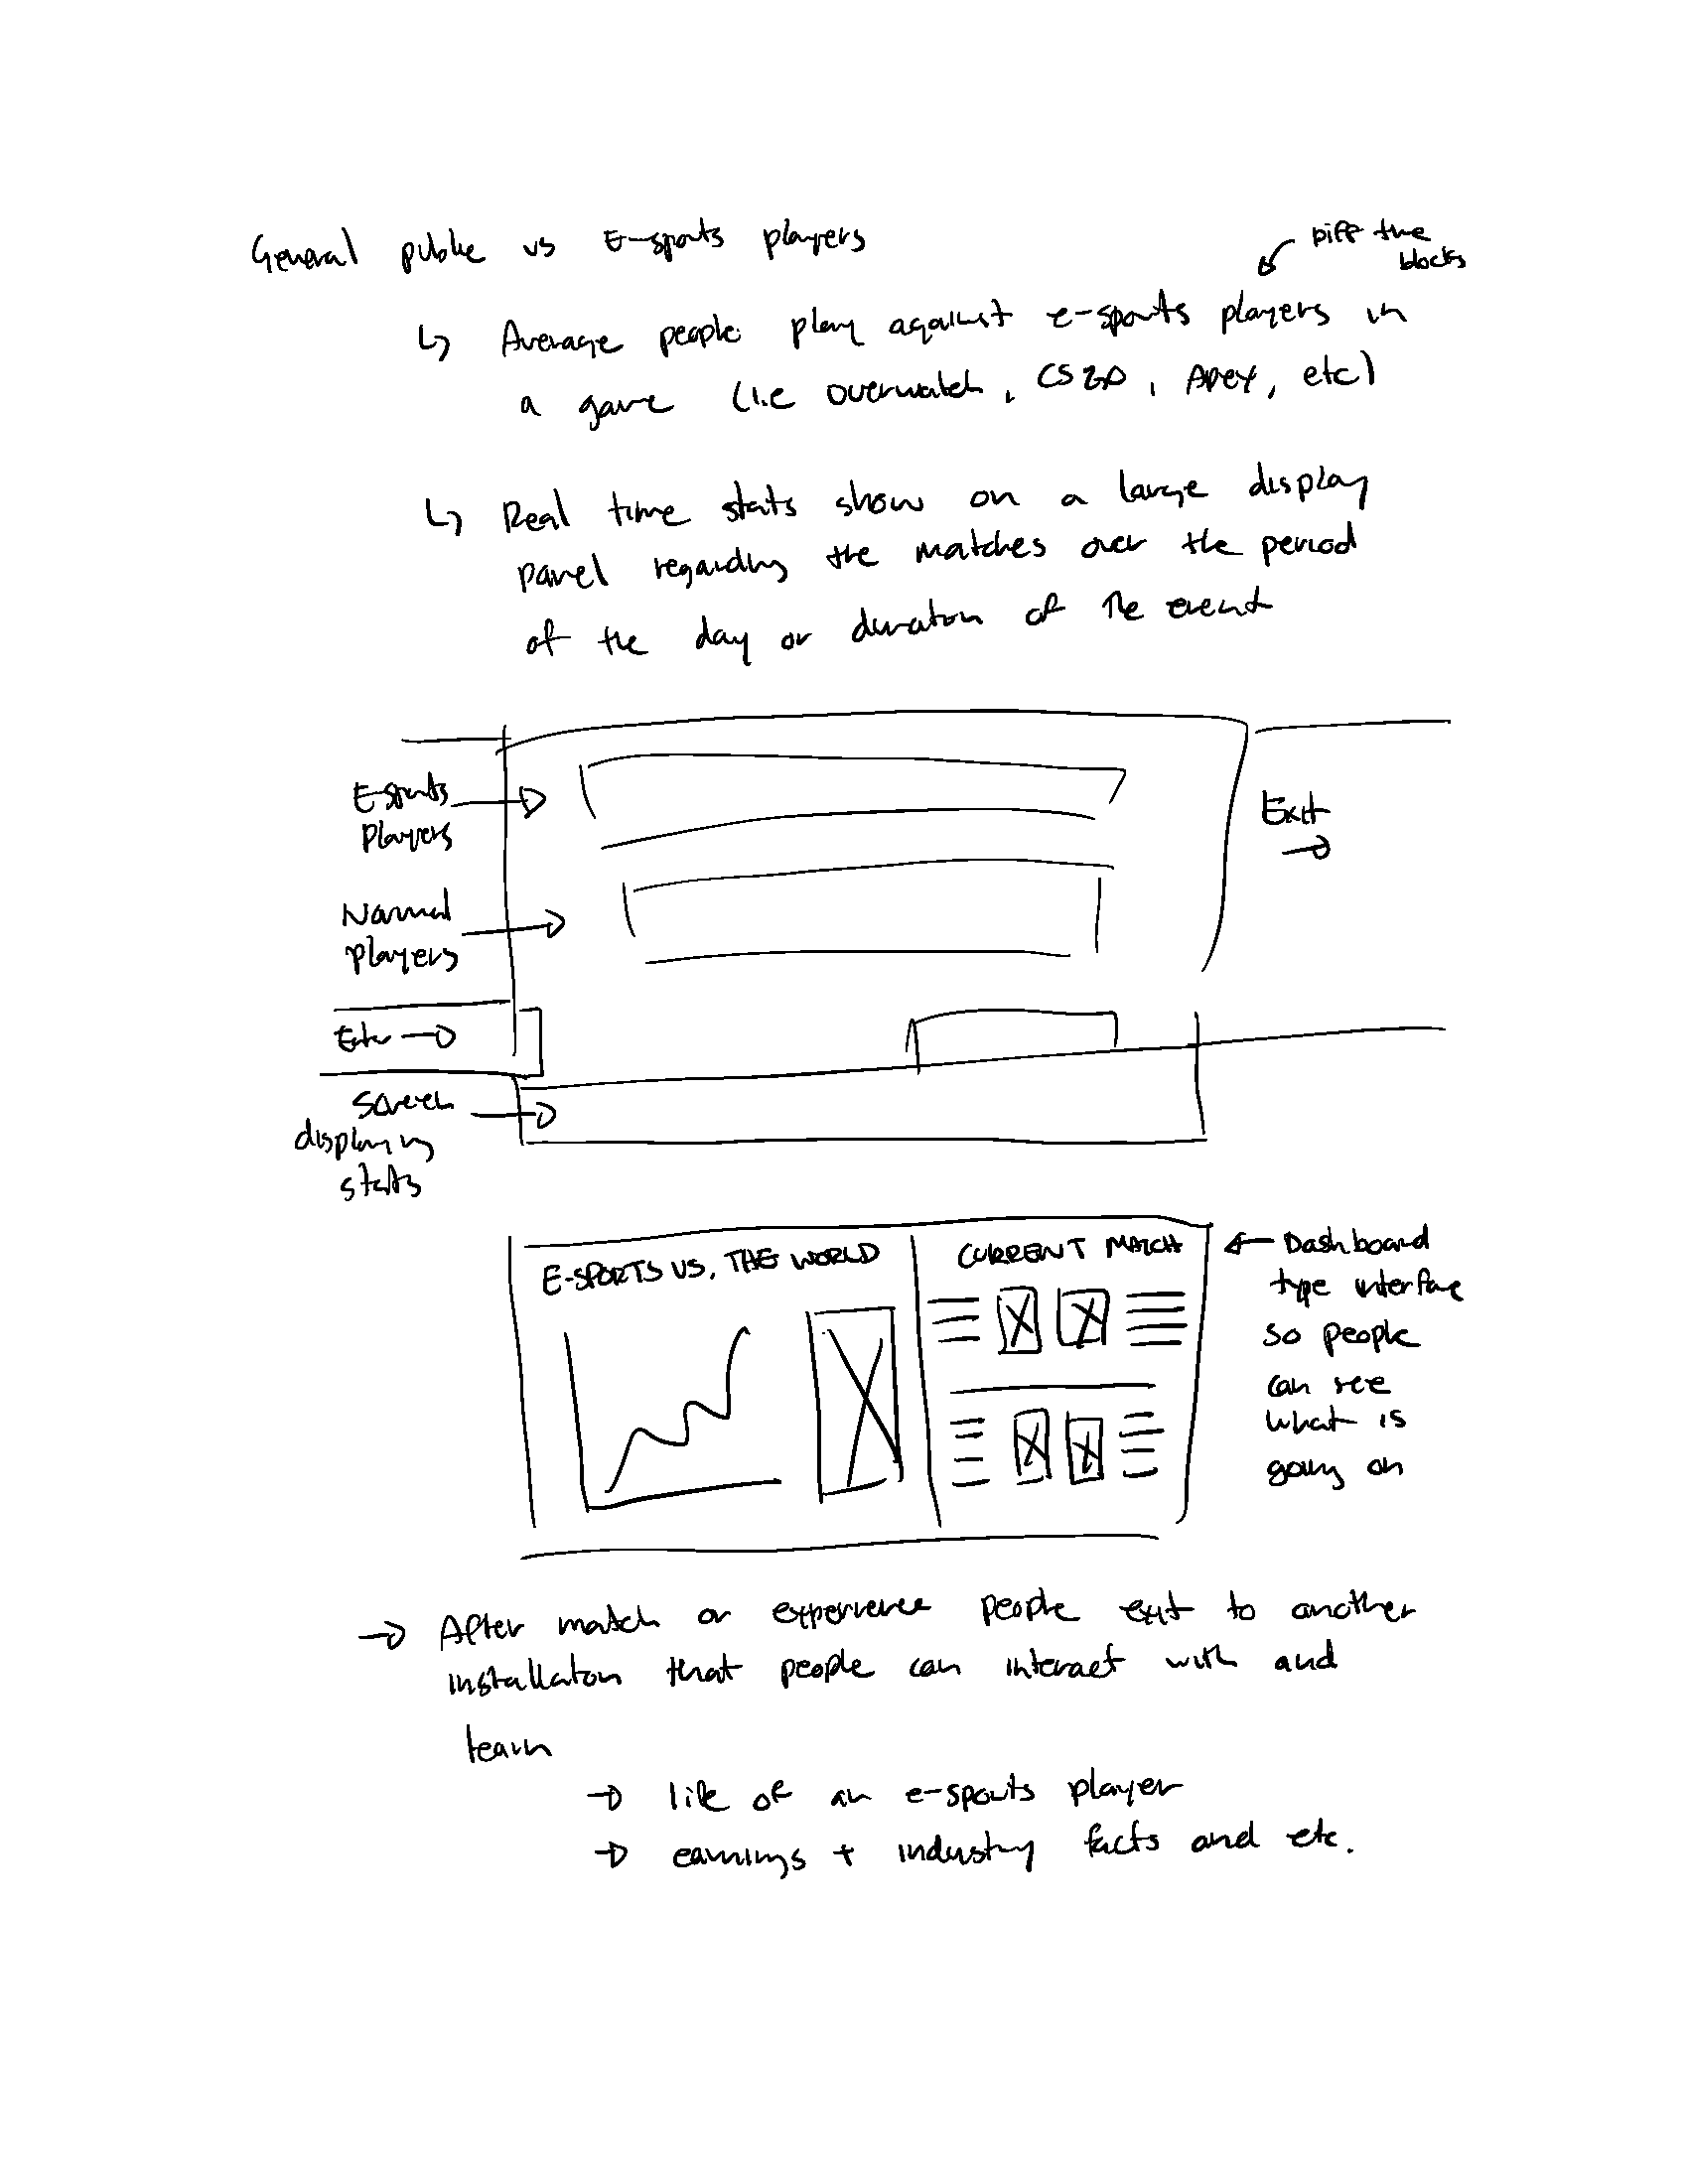 General public vs E-sports players
Diff time
blocks
↳ Average people play against e-sports players in
a game (i.e overwatch, CSGO, Apex, etc)
↳ Real time stats show on a large display
panel regarding the matches over the period
of the day or duration of the event
E-sports
players
Exit
Normal
players
Enter
Screen
displaying
stats
E-SPORTS VS. THE WORLD
CURRENT MATCH
Dashboard
type interface
so people
can see
what is
going on
→ After match or experience people exit to another
installation that people can interact with and
learn
→ life of an e-sports player
→ earnings + industry facts and etc.